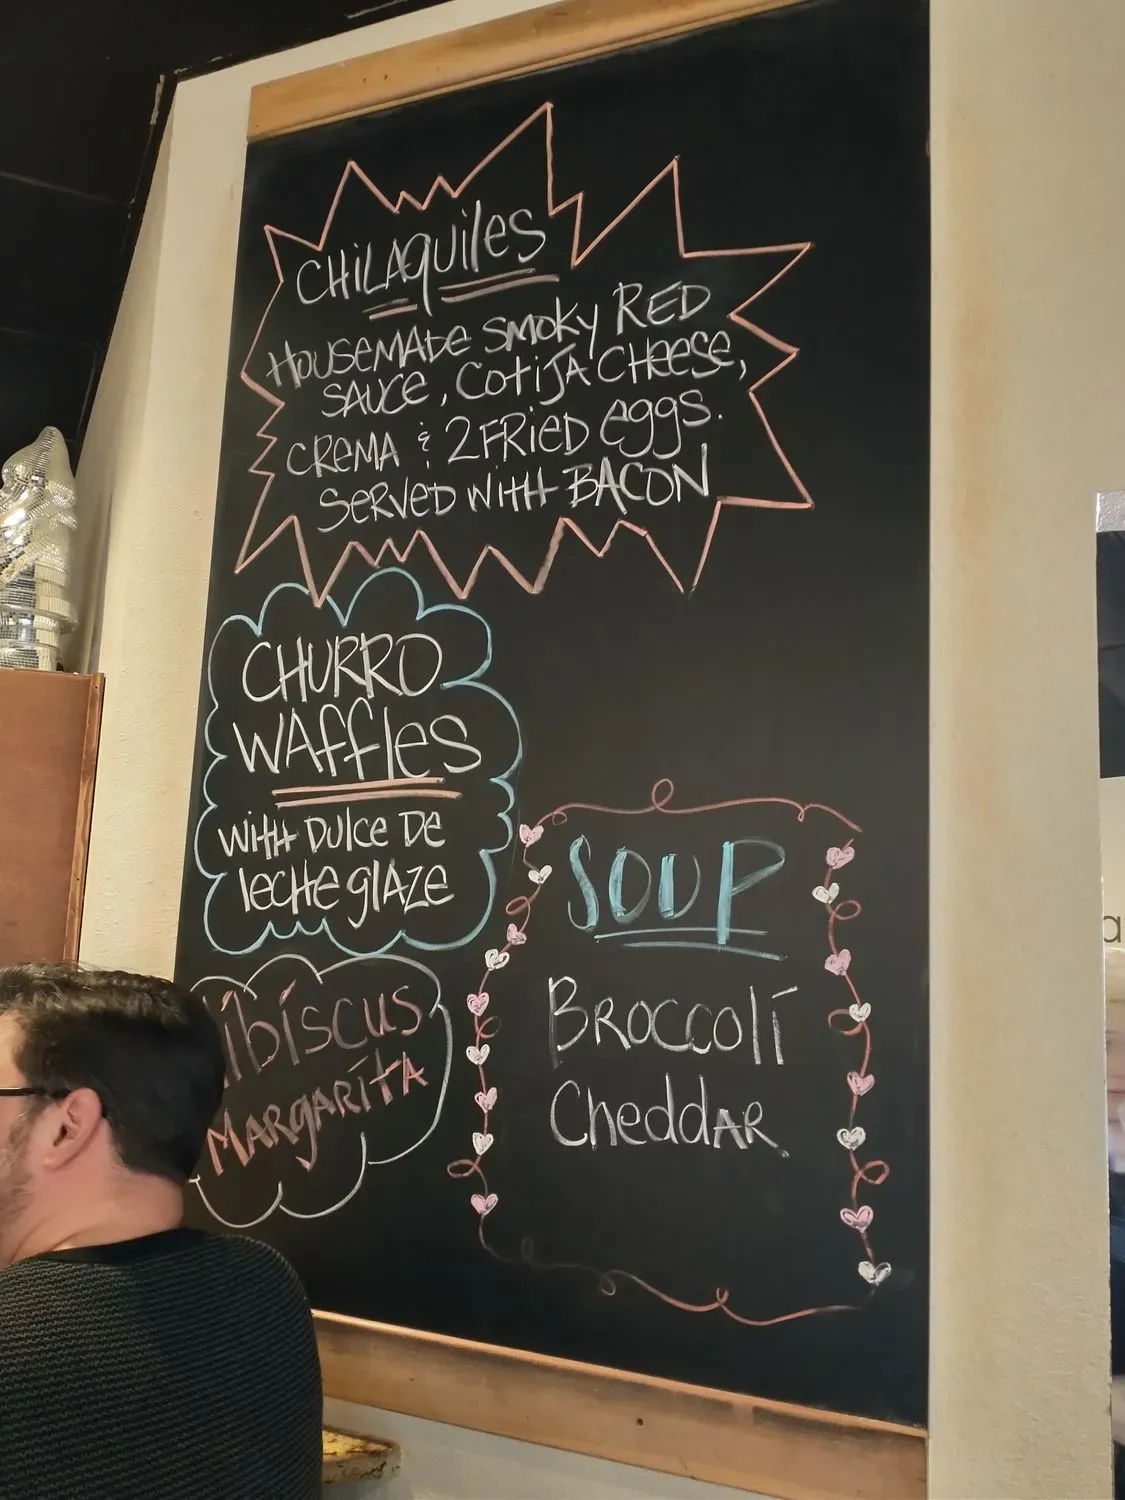 CHILAQUILES
HOUSEMADE SMOKY RED
SAUCE, COTIJA CHEESE,
CREMA & 2 FRIED eggs.
SERVED WITH BACON
CHURRO
WAffles
WITH DULCE DE
leCHE glAZE
SOUP
BROCCOlI
CheddAR
IbIscus
MARgARITA